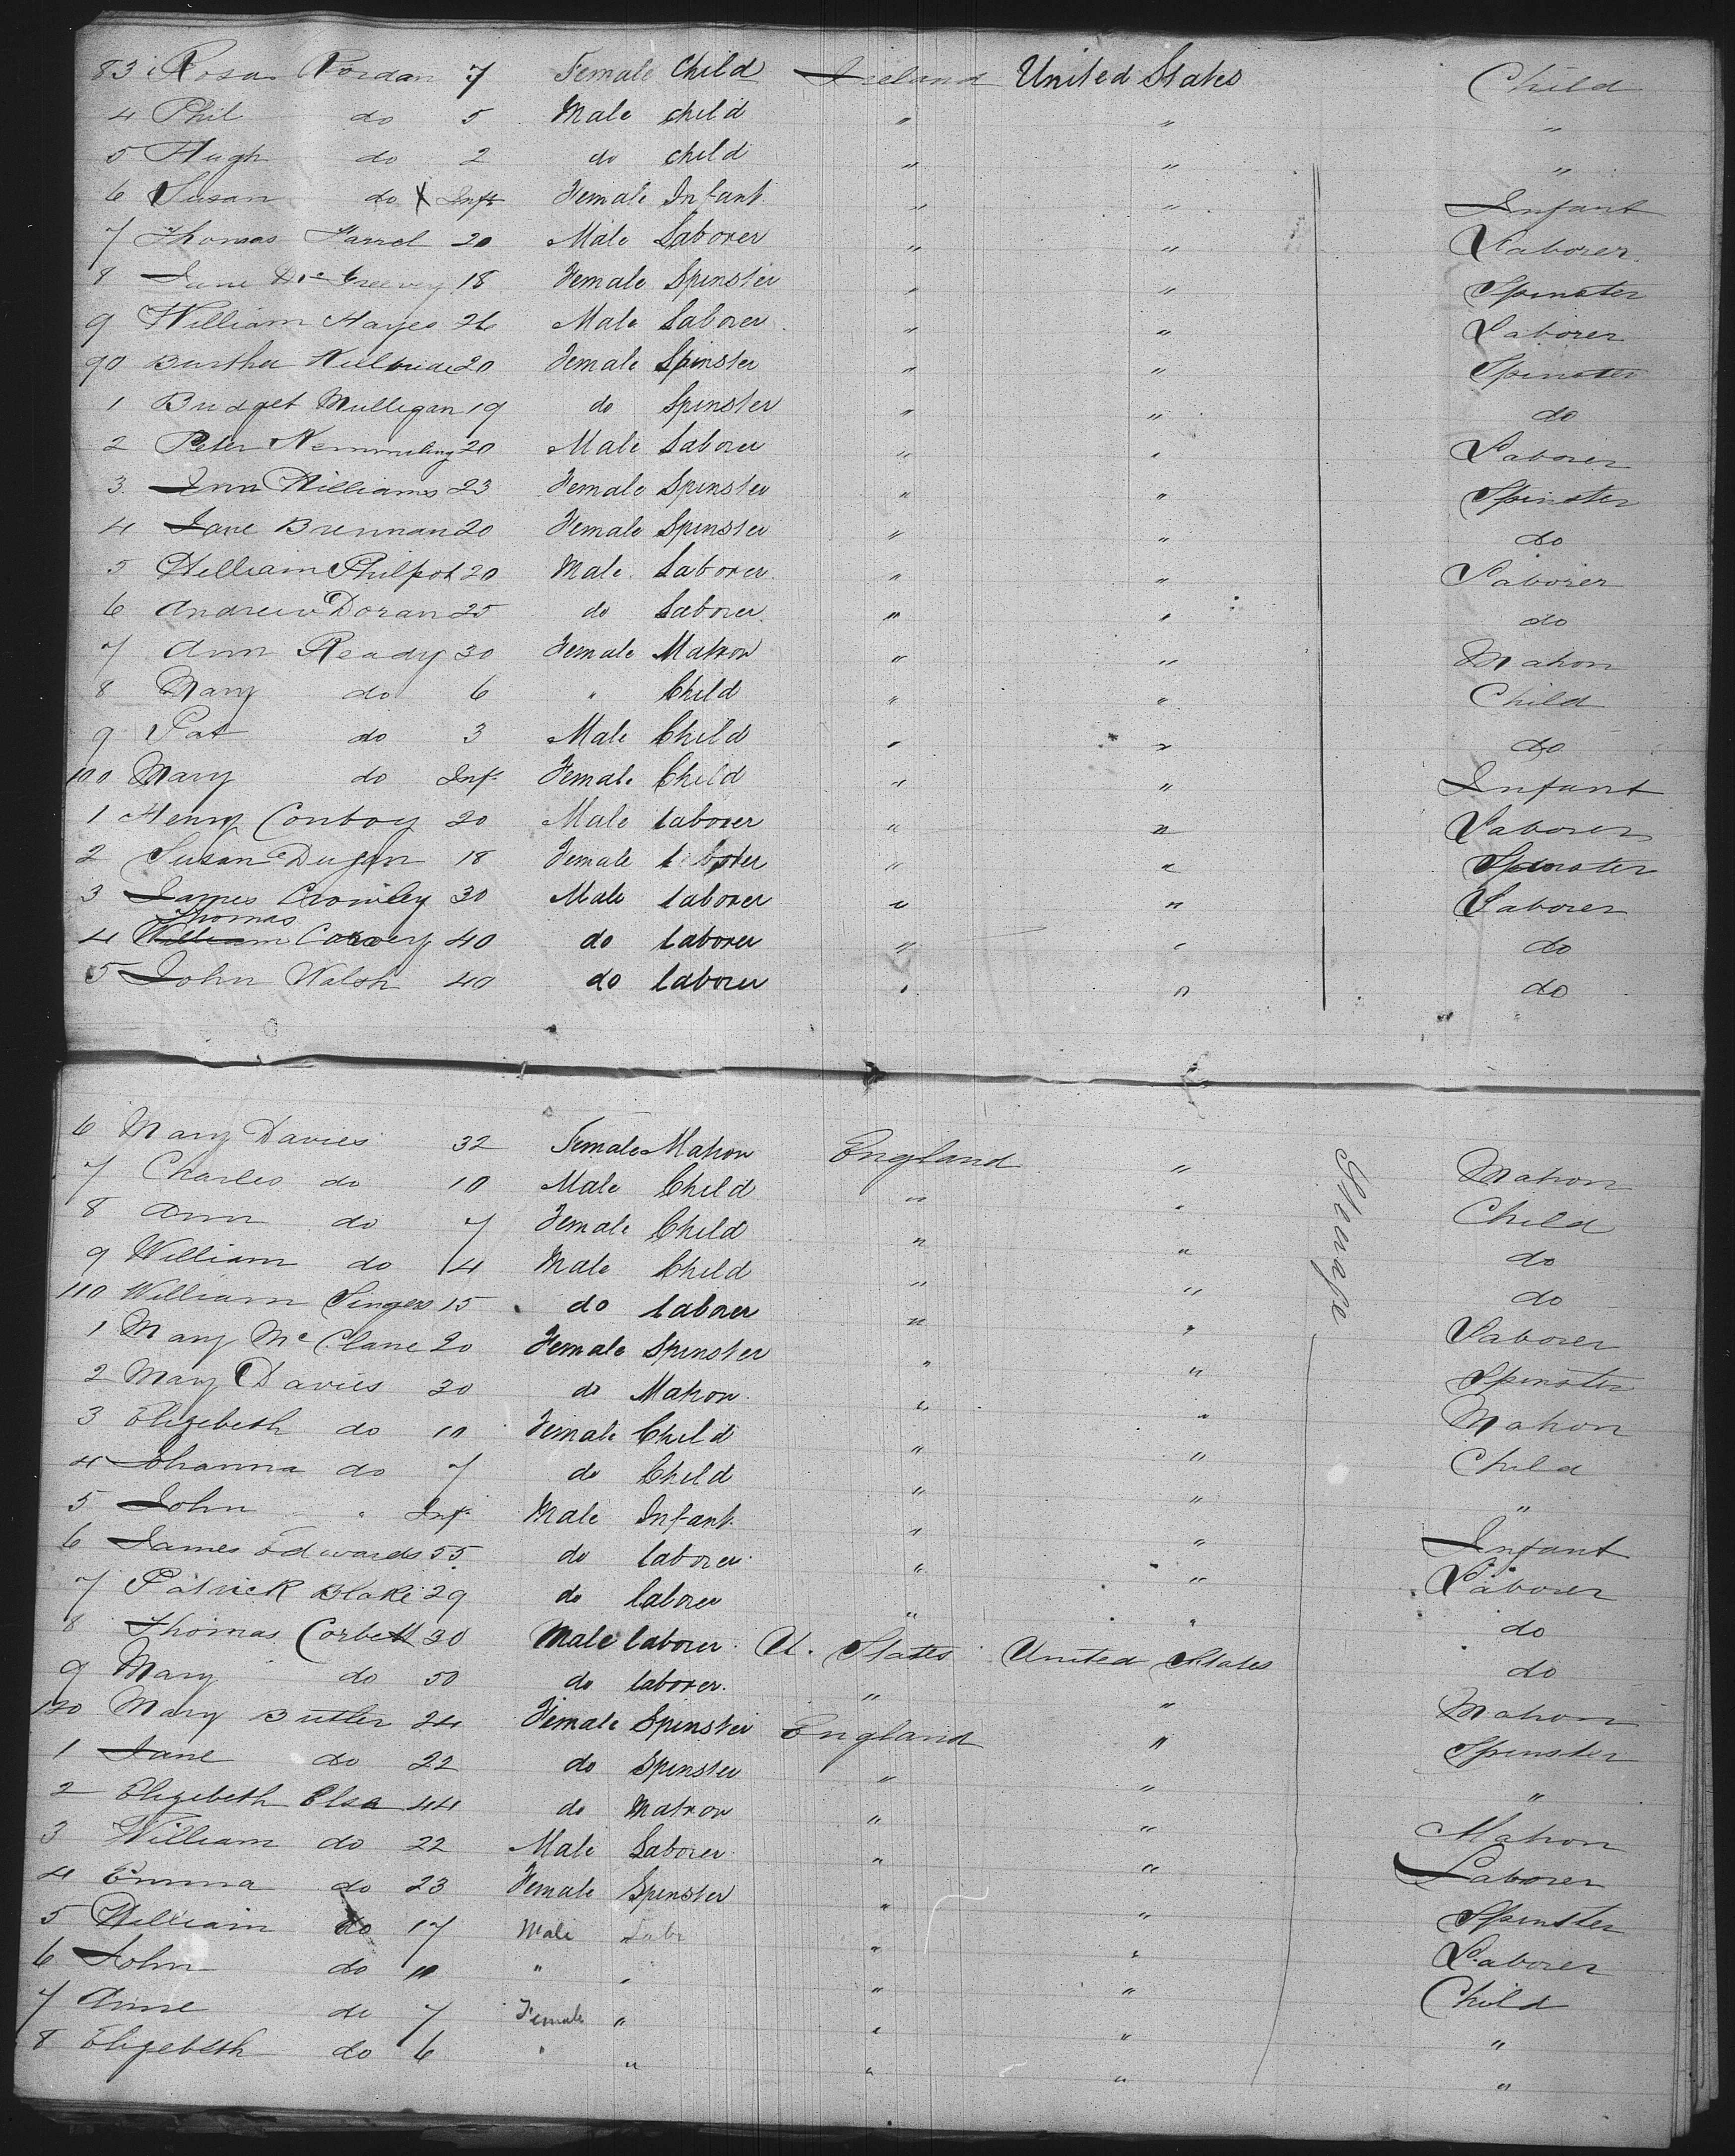 83 Rosa Riordan 7 Female Child Ireland United States Child
4 Phil do 5 Male child " " "
5 Hugh do 2 do child " " "
6 Susan do X Inft Female Infant " " Infant
7 Thomas Farrel 20 Male Laborer " " Laborer
8 Jane Mc Greevey 18 Female Spinster " " Spinster
9 William Hayes 26 Male Laborer " " Laborer
90 Bertha 20 Female Spinster " " Spinster
1 Bridget Mulligan 19 do Spinster " " do
2 Peter 20 Male Laborer " " Laborer
3 Ann Williams 23 Female Spinster " " Spinster
4 Jane Brennan 20 Female Spinster " " do
5 William Philpot 20 Male Laborer " " Laborer
6 Andrew Doran 25 do Laborer " " do
7 Ann Ready 30 Female Matron " " Matron
8 Mary do 6 " Child " " Child
9 Pat do 3 Male Child " " do
100 Mary do Inft Female Child " " Infant
1 Henry Conboy 20 Male laborer " " Laborer
2 Susan Dugan 18 Female " " Spinster
3 James Crowley 30 Male laborer " " Laborer
Thomas
4 William 40 do laborer " " do
5 John Walsh 40 do laborer " " do
6 Mary Davies 32 Female Matron England " Matron
7 Charles do 10 Male Child " " Child
8 Ann do 7 Female Child " " do
9 William do 4 Male Child " " do
110 William Singers 15 do laborer " " Laborer
1 Mary Mc Clane 20 Female Spinster " " Spinster
2 Mary Davies 30 do Matron " " Matron
3 Elizebeth do 10 Female Child " " Child
4 Johanna do 7 do Child " " "
5 John " Inft Male Infant " " Infant
6 James Edwards 55 do laborer " " Laborer
7 Patrick Blake 29 do laborer " " do
8 Thomas Corbett 30 Male laborer U. States United States do
9 Mary do 50 do laborer " " Matron
120 Mary Butler 24 Female Spinster England " Spinster
1 Jane do 22 do Spinster " " "
2 Elizebeth Elsa 44 do Matron " " Matron
3 William do 22 Male Laborer " " Laborer
4 Emma do 23 Female Spinster " " Spinster
5 William do 17 Male Labr " " Laborer
6 John do 10 " " " " Child
7 Anne do 7 Female " " " "
8 Elizebeth do 6 " " " " "
Steerage